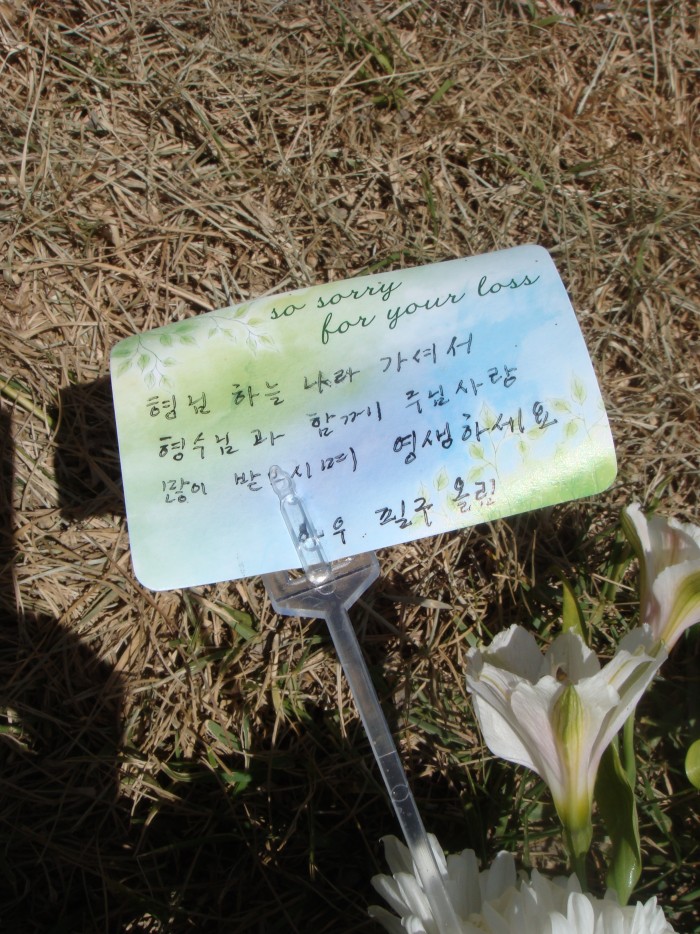 so sorry
for your loss
형님 하늘 나라 가셔서
형수님 과 함께 주님사랑
많이 시며 영생하세요
필구 올림